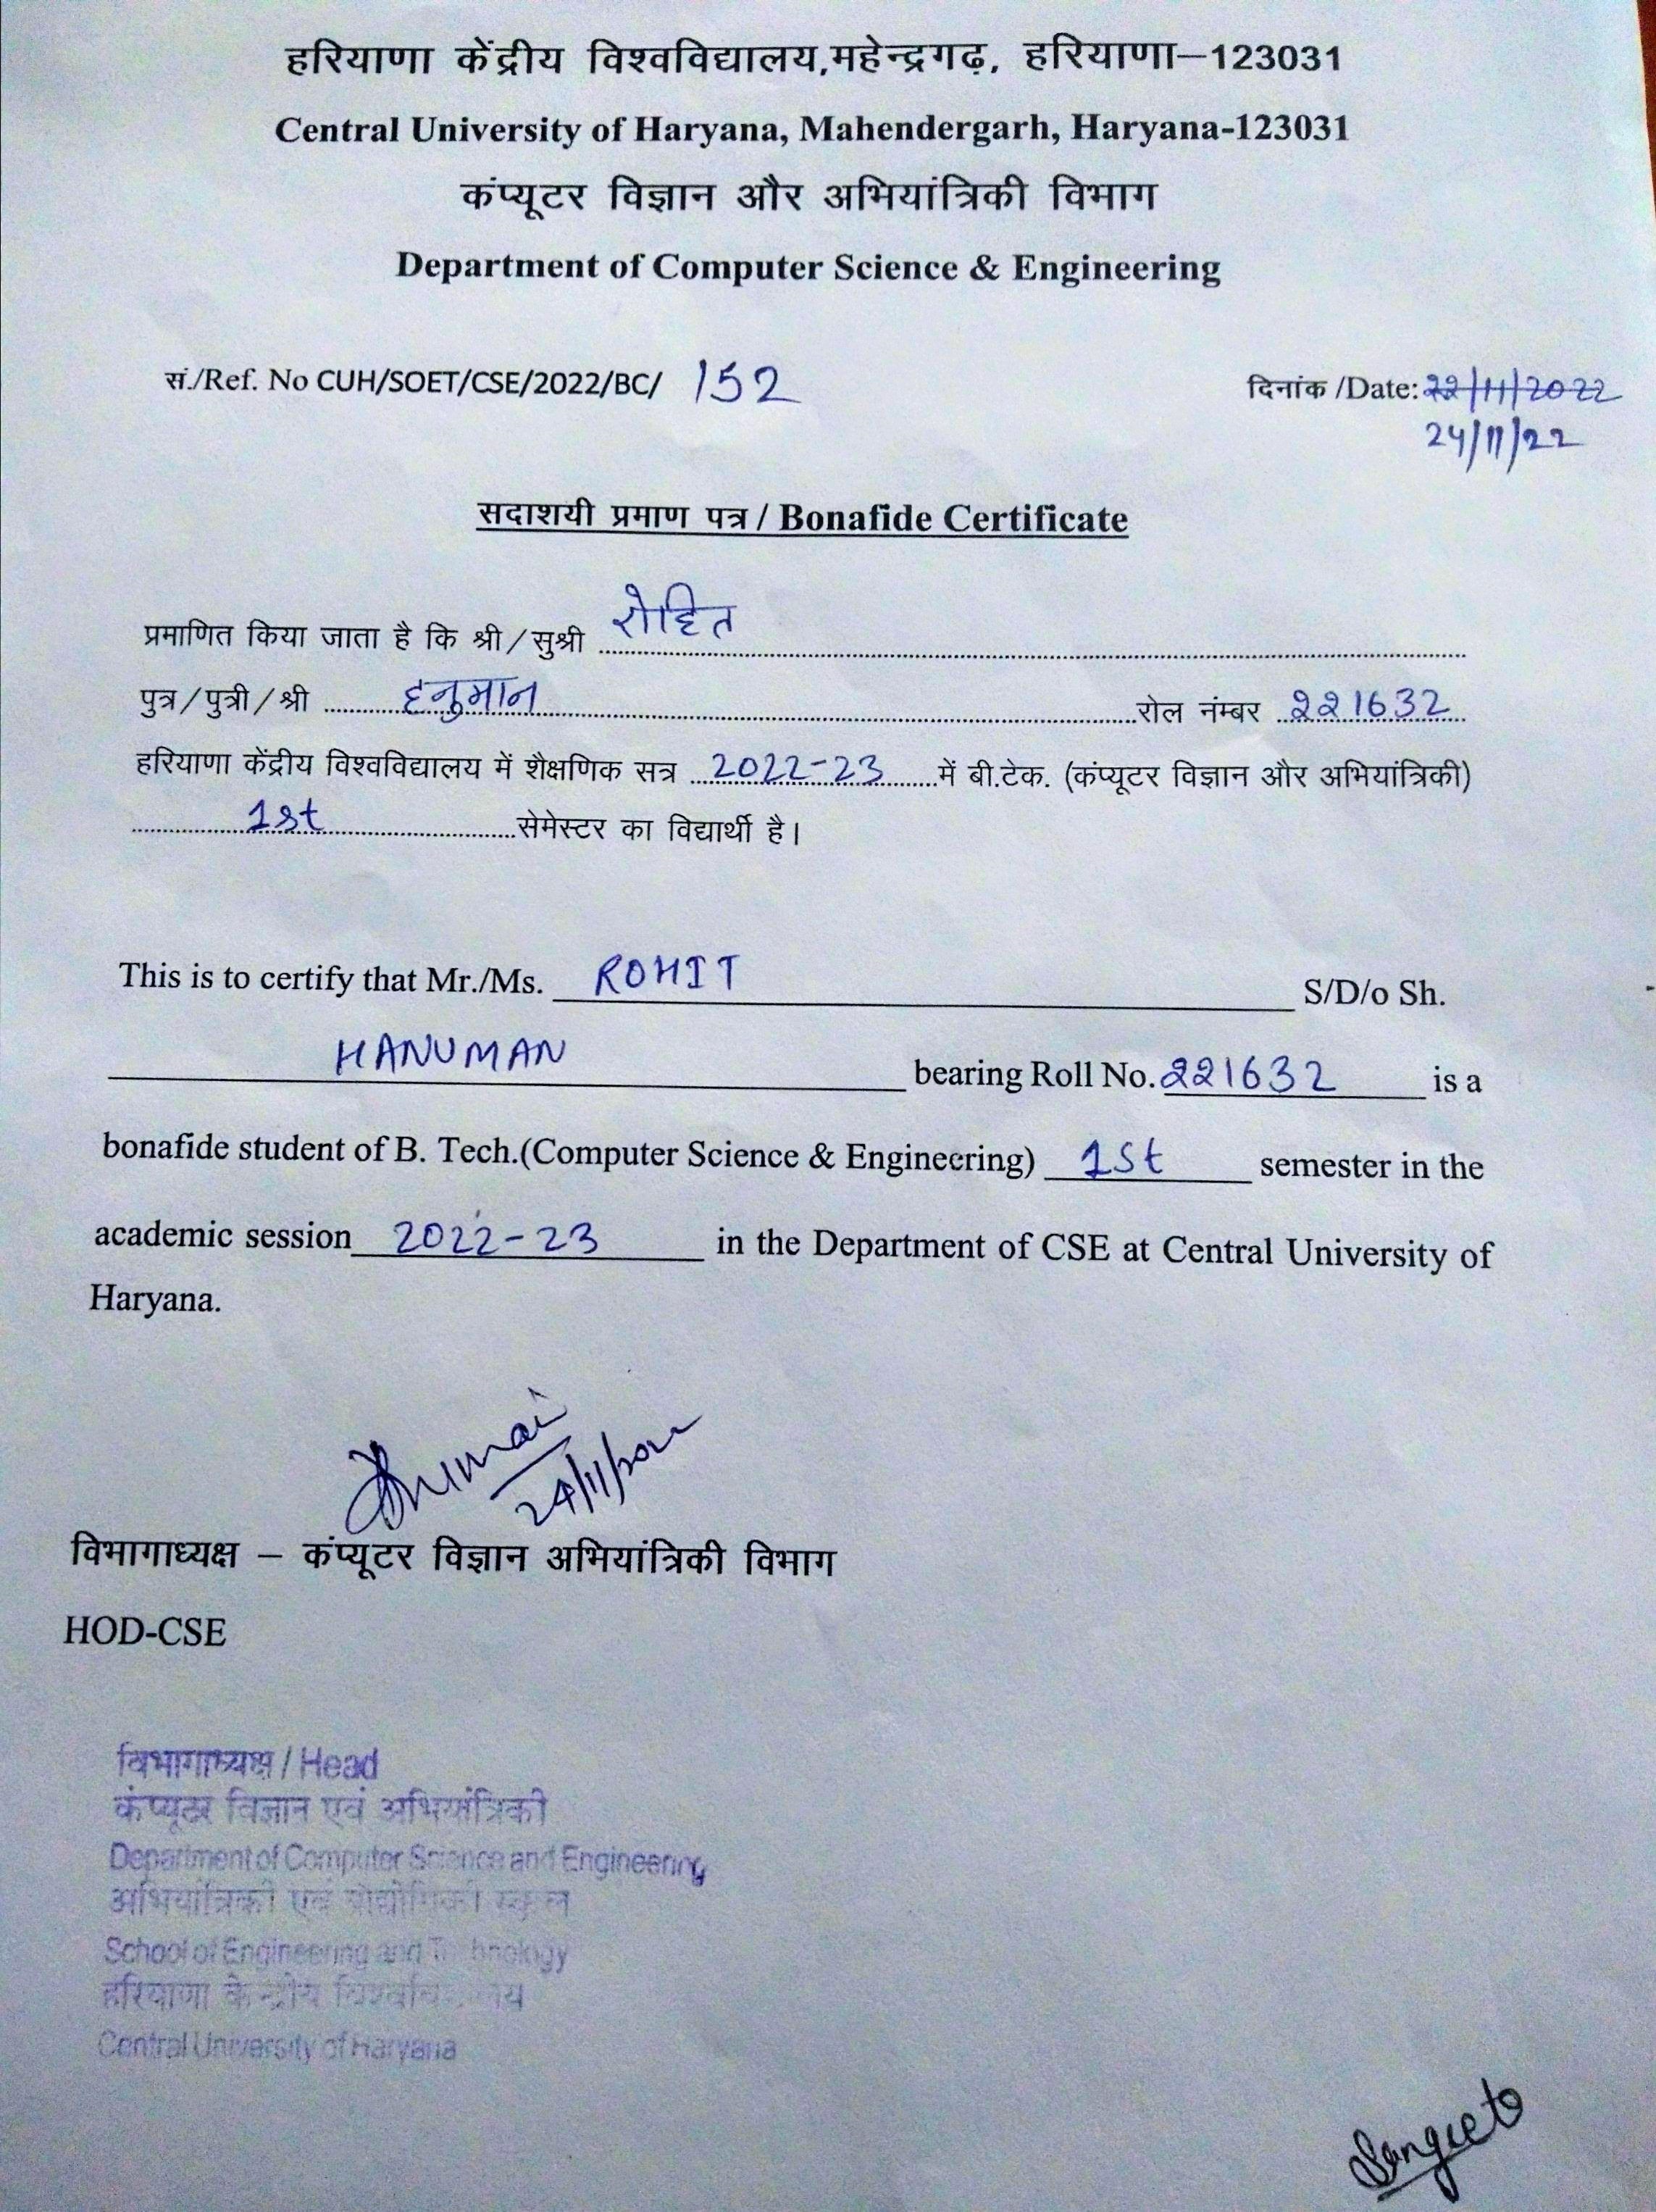 हरियाणा केंद्रीय विश्वविद्यालय,महेन्द्रगढ़, हरियाणा–123031
Central University of Haryana, Mahendergarh, Haryana-123031
कंप्यूटर विज्ञान और अभियांत्रिकी विभाग
Department of Computer Science & Engineering
सं./Ref. No CUH/SOET/CSE/2022/BC/ 152
दिनांक /Date: 22/11/2022
24/11/22
सदाशयी प्रमाण पत्र / Bonafide Certificate
प्रमाणित किया जाता है कि श्री/सुश्री रोहित
पुत्र/पुत्री/श्री हनुमान रोल नंम्बर 221632
हरियाणा केंद्रीय विश्वविद्यालय में शैक्षणिक सत्र 2022-23 में बी.टेक. (कंप्यूटर विज्ञान और अभियांत्रिकी)
1st सेमेस्टर का विद्यार्थी है।
This is to certify that Mr./Ms. ROHIT S/D/o Sh.
HANUMAN bearing Roll No. 221632 is a
bonafide student of B. Tech.(Computer Science & Engineering) 1st semester in the
academic session 2022-23 in the Department of CSE at Central University of
Haryana.
24/11/2022
विभागाध्यक्ष – कंप्यूटर विज्ञान अभियांत्रिकी विभाग
HOD-CSE
विभागाध्यक्ष / Head
कंप्यूटर विज्ञान एवं अभियांत्रिकी
Department of Computer Science and Engineering
अभियांत्रिकी एवं प्रौद्योगिकी स्कूल
School of Engineering and Technology
हरियाणा केन्द्रीय विश्वविद्यालय
Central University of Haryana
Sangeeta